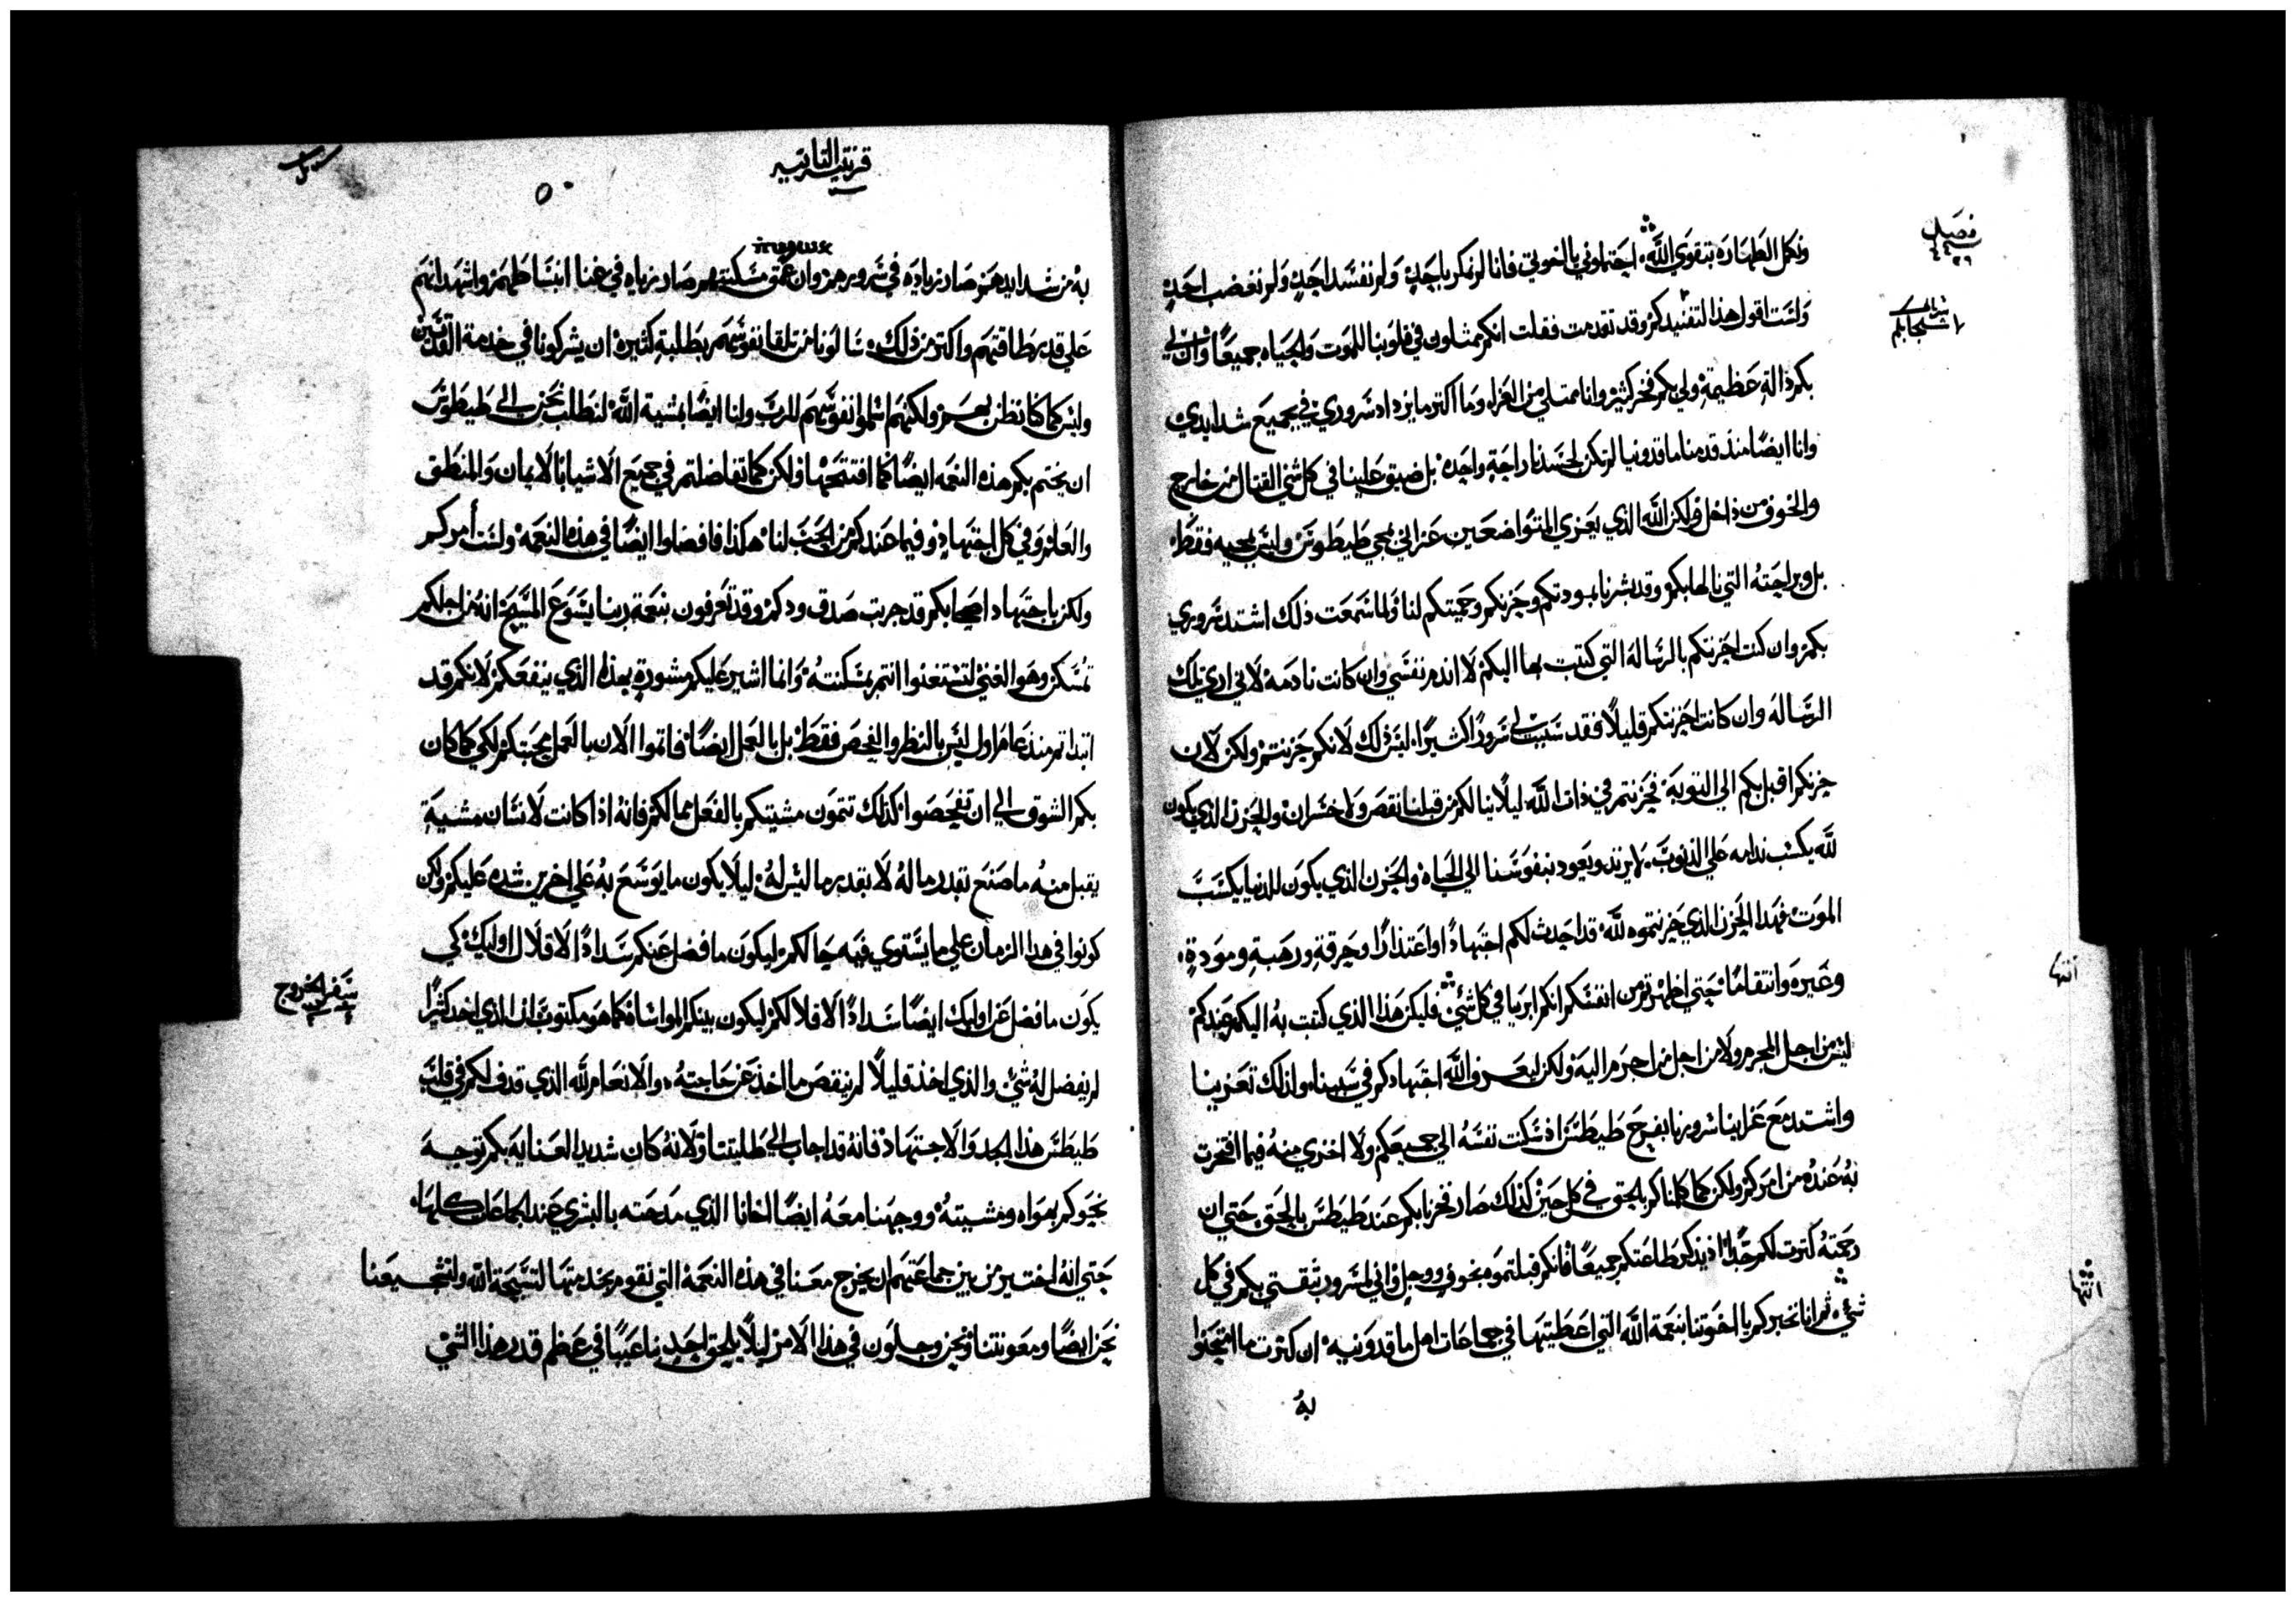 فصل
٣٦
ونكمل الطهاره بتقوي الله احتملوني يا اخوتي فانا لم نمكر باحدٍ ولم نفسد احدٍ ولم نغضب احدٍ
ولست اقول هذا لتفنيدكم وقد تقدمت فقلت انكم ممثلون في قلوبنا للموت والحياه جميعًا وان لي
بكم دالة عظيمة ولي بكم فخر كثير وانا ممتلي من العزاء وما اكثر ما يزداد سروري في جميع شدايدي
وانا ايضًا منذ قدمنا ماقدونيا لم تكن لجسدنا راحةٍ واحده بل ضيق علينا في كل شي القتال من خارج
والخوف من داخل ولكن الله الذي يعزي المتواضعين عزاني بمجي طيطوس وليس بمجيه فقط
بل وبراحته التي نالها بكم وقد بشرنا بمودتكم وحزنكم وحميتكم لنا ولما سمعت ذلك اشتد سروري
بكم وان كنت احزنتكم بالرساله التي كتبت بها اليكم لا اندم نفسي وان كانت نادمة لاني اري تلك
الرساله وان كانت احزنتكم قليلًا فقد سببت لي سرورًا كثيرًا ليس ذلك لانكم حزنتم ولكن لان
حزنكم اقبل بكم الي التوبة فحزنتم في ذات الله ليلا ينالكم من قبلنا نقص ولا خسران والحزن الذي يكون
لله يكسب ندامه علي الذنوب لا يرتد ويعود بنفوسنا الي الحياه والحزن الذي يكون للدنيا يكسب
الموت فهذا الحزن الذي حزنتموه لله قد احدث لكم اجتهادًا او اعتذارًا وحرقةٍ ورهبةٍ ومودةٍ
وغيره وانتقامًا حتي اظهرتم من انفسكم انكم ابريا في كل شي فليكن هذا الذي كتبت به اليكم عندكم
ليس من اجل المجرم ولا من اجل من اجرم اليه ولكن ليعرف الله اجتهادكم في سببنا ولذلك تعزينا
واشتد مع عزاينا سرورنا بفرح طيطس اذ سكنت نفسه الي جميعكم ولا اخزي منه فيما افتخرت
به عنده من امركم ولكن كما كلمناكم بالحق في كل حين كذلك صار فخرنا بكم عند طيطس بالحق حتي ان
رحمته كثرت لكم جدًا اذ يذكر طاعتكم جميعًا فانكم قبلتموه بخوف ووجل واني لمسرور بثقتي بكم في كل
شي ثم انا نخبركم يا اخوتنا بنعمة الله التي اعطيتها في جماعات اهل ماقدونيه ان كثرت ما امتحنوا
به
انتها
انتها
قرنتيه الثانيه
٥٠
به من شدايدهم صار زياده في سرورهم وان عمق مسكنتهم صار زياده في غنا انبساطهم واشهد انهم
علي قدر طاقتهم واكثر من ذلك سالونا من تلقا نفوسهم بطلبةٍ كثيره ان يشركونا في خدمة القديسين
وليس كما كنا نظن بهم ولكنهم اسلموا نفوسهم للرب ولنا ايضًا بمشية الله لنطلب نحن الي طيطوس
ان يختم بكم هذه النعمه ايضًا كما افتتحها ولكن كما تفاضلتم في جميع الاشيا بالايمان والمنطق
والعلم وفي كل اجتهاد وفيما عندكم من الحب لنا هكذا فافضلوا ايضًا في هذه النعمه ولست امركم
ولكن باجتهاد اصحابكم قد جربت صدق ودكم وقد تعرفون نعمة ربنا يسوع المسيح انه من اجلكم
تمسكن وهو الغني لتستغنوا انتم بمسكنته وانما اشير عليكم مشورةٍ بهذا الذي ينفعكم لانكم قد
ابتداتم منذ عام اول ليس بالنظر والفحص فقط بل بالعمل ايضًا فاتموا الان بالعمل محبتكم لكي كما كان
بكم الشوق الي ان تفحصوا كذلك تتمون مشيتكم بالفعل مما لكم فانه اذا كانت لانسان مشيةٍ
يقبل منه ما صنع بقدر ما له لا بقدر ما ليس له ليلا يكون ما يوسع به علي اخرين شده عليكم ولكن
كونوا في هذا الزمان علي ما يستوي فيه حالكم ليكون ما فضل عنكم سدادًا لاقلال اوليك كي
يكون ما فضل عن اوليك ايضًا سدادًا لاقلالكم ليكون بينكم المواساه كما هو مكتوب ان الذي اخذ كثيرًا
سفر الخروج
لم يفضل له شي والذي اخذ قليلًا لم ينقص ما اخذ عن حاجته والانعام لله الذي قدف لكم في قلب
طيطس هذا الجد والاجتهاد فانه قد اجاب الي طلبتنا ولانه كان شديد العنايه بكم توجه
نحوكم بهواه ومشيته ووجهنا معه ايضًا اخانا الذي مدحته بالبشري عند الجماعات كلها
حتي انه اختير من بين جماعتهم ان يخرج معنا في هذه النعمه التي نقوم بخدمتها لتسبحة الله ولتشجيعنا
نحن ايضًا ومعونتنا ونحن وجلون في هذا الامر ليلًا يلحق احدٍ بنا عيبًا في عظم قدر هذا الشي